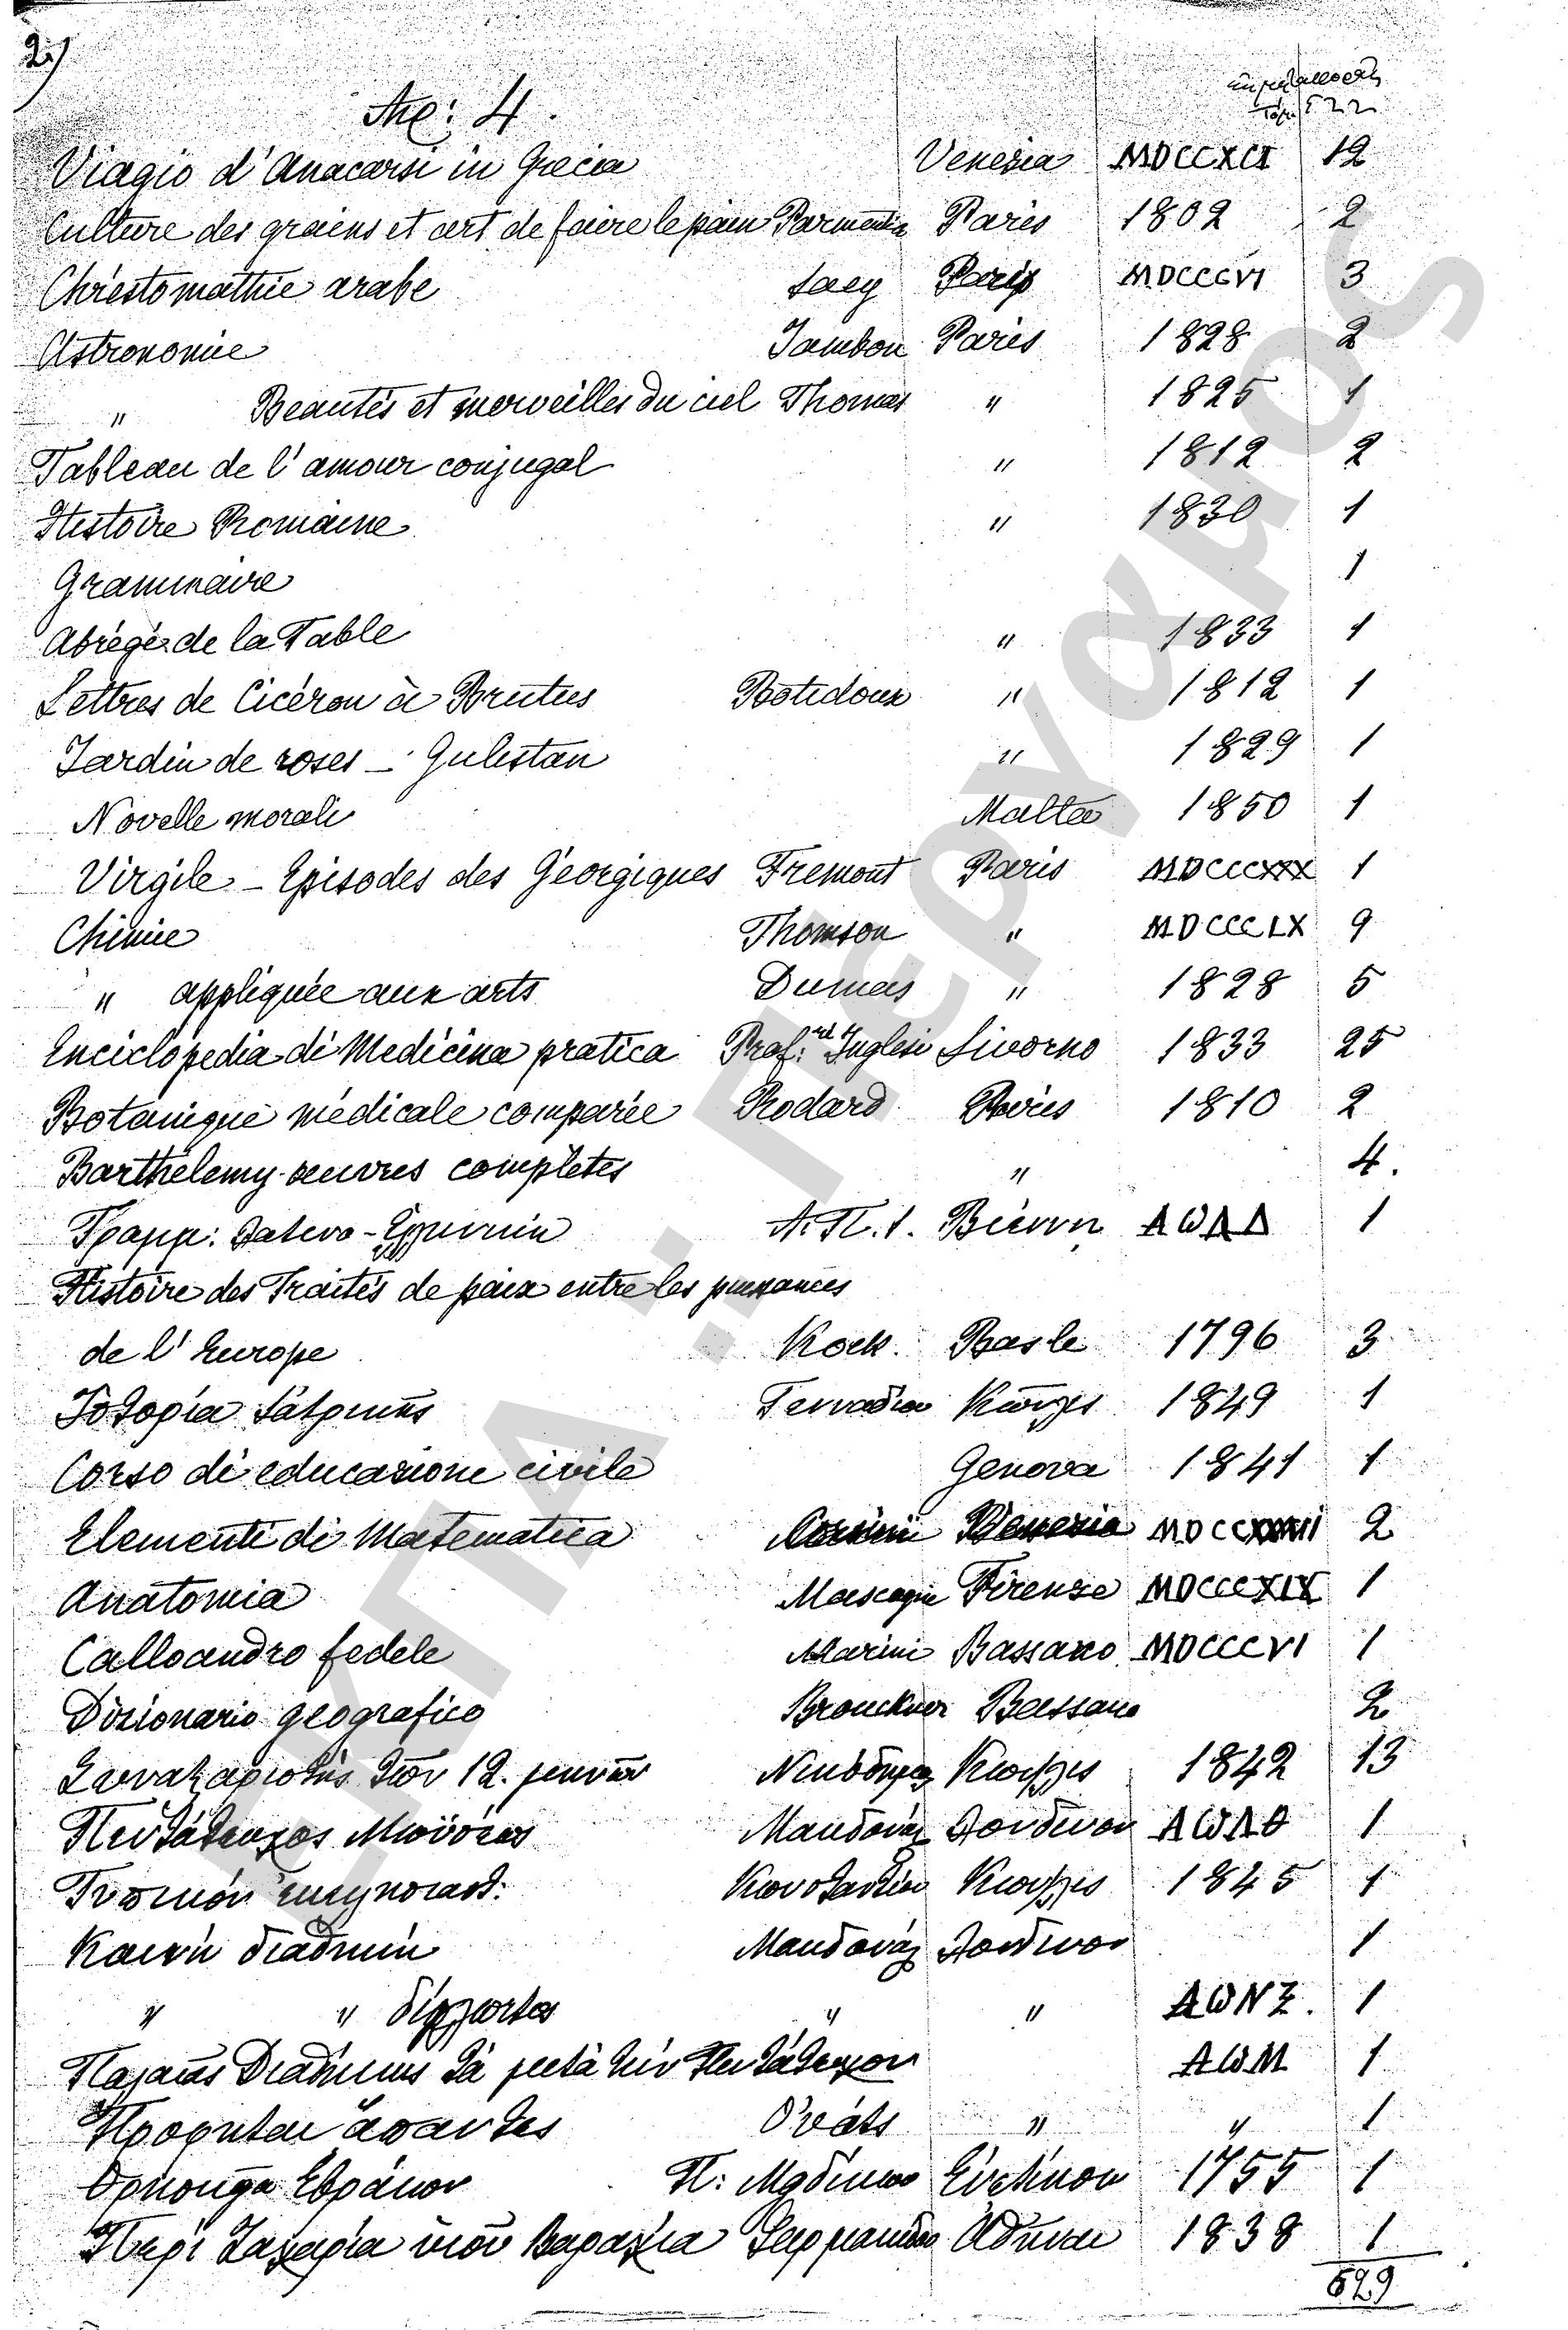 2)
Ἀρ: 4.
Τόμοι 522
Viagio d'Anacarsi in Grecia Venezia MDCCXCI 12
Culture des grains et art de faire le pain Parmentier Paris 1802 2
Chrestomathie arabe Sacy Paris MDCCCVI 3
Astronomie Jambon Paris 1828 2
" Beautés et merveilles du ciel Thomas " 1825 1
Tableau de l'amour conjugal " 1812 2
Histoire Romaine " 1830 1
Grammaire 1
Abrégé de la Table " 1833 1
Lettres de Cicéron à Brutus Botidoux " 1812 1
Jardin de roses – Gulistan " 1829 1
Novelle morali Malta 1850 1
Virgile – Episodes des Géorgiques Fremont Paris MDCCCXXX 1
Chimie Thomson " MDCCCLX 9
" appliquée aux arts Dumas " 1828 5
Enciclopedia di Medicina pratica Prof: Inglesi Livorno 1833 25
Botanique médicale comparée Rodard Paris 1810 2
Barthélemy œuvres complètes " 4.
Γραμμ: Λατινο-Ἑλληνική Α.Π.Σ. Βιέννη ΑΩΛΔ 1
Histoire des Traités de paix entre les puissances
de l'Europe Kock. Basle 1796 3
Ἱστορία ἰατρικῆς Γενναδίου Κων/λις 1849 1
Corso di educazione civile Genova 1841 1
Elementi di Matematica Venezia 2
Anatomia Mascagni Firenze MDCCCXIX 1
Calloandro fedele Marini Bassano MDCCCVI 1
Dizionario geografico Brouckner Bassano 2
Συναξαριστὴς τῶν 12. μηνῶν Νικόδημος Κων/λις 1842 13
Πεντάτευχος Μωϋσέως Λονδίνον ΑΩΛΘ 1
Τυπικὸν ἐκκλησιαστ: Κωνσταντίνου Κων/λις 1845 1
Καινὴ διαθήκη Λονδίνον 1
" " δίγλωττος " " ΑΩΝΖ. 1
Παλαιᾶς Διαθήκης τὰ μετὰ τὴν Πεντάτευχον ΑΩΜ 1
Προφῆται ἅπαντες Οὐάτς " " 1
1755 1
Περὶ Ζαχαρία υἱοῦ Βαραχία Ἀθῆναι 1838 1
629
ΕΚΠΑ :: Πέργαμος